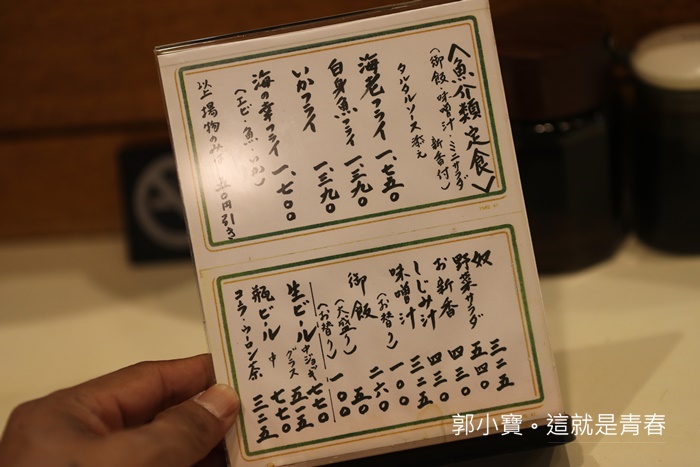 〈魚介類定食〉
(御飯・味噌汁・ミニサラダ
新香付)
タルタルソース添え
海老フライ 一、七五〇
白身魚フライ 一、三九〇
いかフライ 一、三九〇
海の幸フライ 一、七〇〇
(エビ・魚・いか)
以上揚物のみは 五〇円引き
奴 三二五
野菜サラダ 五四〇
お新香 四三〇
しじみ汁 三二五
味噌汁 一〇〇
(お替り) 二六〇
御飯
(大盛り) 五〇
(お替り) 一〇〇
生ビール 中ジョッキ 七七〇
グラス 五一五
瓶ビール 中 七七〇
コーラ・ウーロン茶 三二五
郭小寶。這就是青春